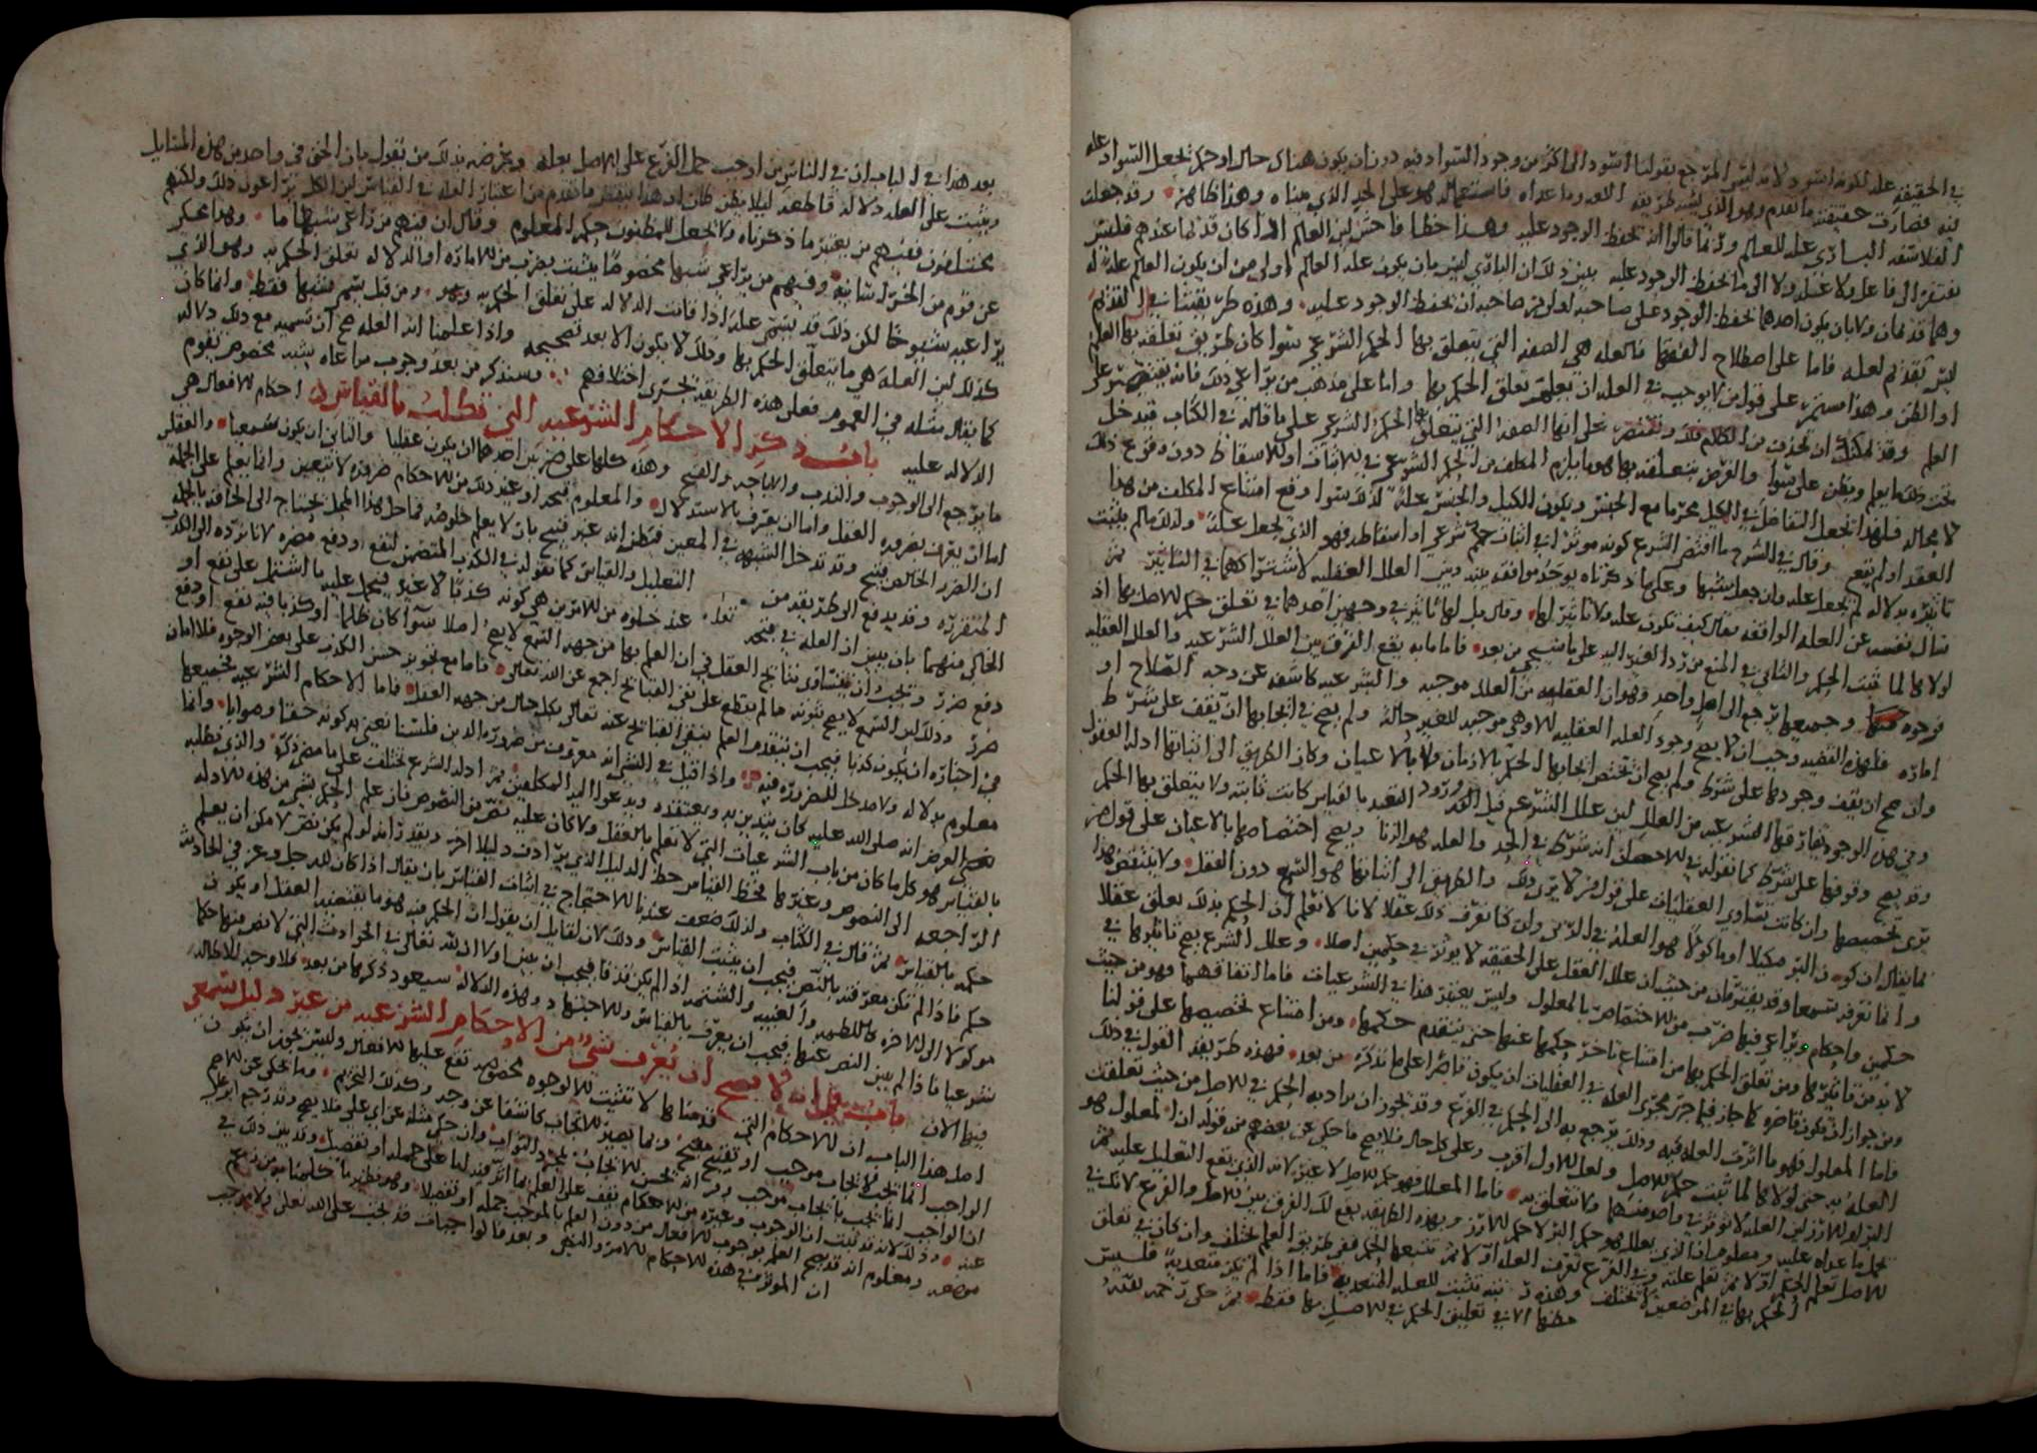 في الحقيقة علة لكونه اسود لانه ليس المرجع بقولنا اسود الى اكثر من وجود السواد فيه دون ان يكون هناك حال او حكم يجعل السواد علة
فيه فصارت حقيقته ما تقدم وهو الذي يشبه طريقة اللغة وما عداه فاستعماله هو على الحد الذي بيناه وهذا ظاهر وقد جعلت
الفلاسفة الباري علة للعالم وانما قالوا انه يحفظ الوجود عليه وهذا خطا فاحش لان العالم اذا كان قديما عندهم فليس
يفتقر الى فاعل ولا علة ولا الى ما يحفظ الوجود عليه يبين ذلك ان الباري ليس بان يكون علة العالم اولى من ان يكون العالم علة له
وهما قديمان ولا بان يكون احدهما يحفظ الوجود على صاحبه اولى من صاحبه ان يحفظ الوجود عليه وهذه طريقتنا في ان القديم
ليس بقديم لعلة فاما على اصطلاح الفقهاء فالعلة هي الصفة التي يتعلق بها الحكم الشرعي سوا كان طريق تعلقه بها العلم
او الظن وهذا مستمر على قول من لا يوجب في العلة ان تعلم تعلق الحكم بها واما على مذهب من يراعي ذلك فانه يقتصر على
العلم وقد يمكنك ان تحذف من الكلام ذلك وتقتصر على انها الصفة التي يتعلق بها الحكم الشرعي على ما قاله في الكتاب فيدخل
تحت ذلك ما يعلم ويظن على سوا والغرض بتعلقه بها هو ما يلزم المكلف من الحكم الشرعي في الاثبات او الاسقاط دون وقوع ذلك
لا محالة فلهذا نجعل التفاضل في الكيل محرما مع الجنس ويكون الكيل والجنس علة لذلك سوا وقع امتناع المكلف من هذا
العقد او لم يقع وقال في الشرح ما اقتضى الشرع كونه موثرا في اثبات حكم شرعي او اسقاطه فهو الذي يجعل علة ولذلك ما لم يثبت
تاثيره بدلالة لم نجعله علة وان جعل مشبها وعلى ما ذكرناه يوجد موافقة بينه وبين العلل العقلية لاشتراكهما في التاثير ثم
سال نفسه عن العلة الواقفة فقال كيف تكون علة ولا تاثير لها وقال بل لها تاثير في وجهين احدهما في تعلق حكم الاصل بها اذ
لولاها لما ثبت الحكم والثاني في المنع من رد الغير اليه على ما سيجي من بعد فاما ما به يقع الفرق بين العلل الشرعية والعلل العقلية
فوجوه وجميعها ترجع الى اصل واحد وهو ان العقلية من العلل موجبة والشرعية كاشفة عن وجه الصلاح او
امارة فلهذه القضية وجب ان لا يصح وجود العلة العقلية الا وهي موجبة للغير حالة ولم يصح في ايجابها ان يقف على شرط
وان صح ان يقف وجودها على شرط ولم يصح ان تختص ايجابها الحكم بالازمان ولا بالاعيان وكان الطريق الى اثباتها ادلة العقول
وفي هذه الوجوه يفارقها الشرعية من العلل لان علل الشرع قبل ورود التعبد بالقياس كانت ثابتة ولا يتعلق بها الحكم
وقد يصح وقوفها على شرط كما نقوله في الاحصان انه شرط في الحد والعلة هو الزنا ويصح اختصاصها بالاعيان على قول من
يرى تخصيصها وان كانت تساوي العقليات على قول من لا يرى ذلك والطريق الى اثباتها هو السمع دون العقل ولا ينتقض هذا
بما يقال ان كون البر مكيلا او ماكولا هو العلة في الربى وان كنا نعرف ذلك عقلا لانا لا نعلم ان الحكم بذلك يعلق عقلا
وانما نعرفه سمعا وقد يفترقان من حيث ان علل العقل على الحقيقة لا يوثر في حكمين اصلا وعلل الشرع يصح تاثيرها في
حكمين واحكام ويراعى فيها ضرب من الاختصاص بالمعلول وليس يعتبر هذا في الشرعيات فاما اتفاقهما فهو من حيث
لا بد من تاثيرها ومن تعلق الحكم بها من امتناع تاخر حكمها عنها حتى يتقدم حكمها ومن امتناع تخصيصها على قولنا
ومن جواز ان تكون قاصرة كما جاز فيما جرى مجرى العلة في العقليات ان يكون قاصرا على ما نذكره من بعد فهذه طريقة القول في ذلك
فاما المعلول فهو ما اثرت العلة فيه وذلك يرجع به الى الحكم في الفرع وقد يجوز ان يراد به الحكم في الاصل من حيث تعلقت
العلة به حتى لولاها لما ثبت حكم الاصل ولعل الاول اقرب وعلى كل حال فلا يصح ما حكي عن بعضهم من قوله ان المعلول هو
البر او الارز لان العلة لا توثر في واحد منهما ولا تتعلق به فاما المعلل فهو حكم الاصل لا غير لانه الذي يقع التعليل عليه ثم
يحمل ما عداه عليه ومعلوم ان الذي يعلل هو حكم البر لا حكم الارز وبهذه الطريقة يقع لك الفرق بين الاصل والفرع لانك في
الاصل تعلم الحكم اولا ثم تعلم علته وفي الفرع تعرف العلة اولا ثم تتبعها الحكم فطريق العلم مختلف وان كان في تعلق
الحكم بها في الموضعين لا تختلف وهذه بنية تثبت للعلة المتعدية فاما اذا لم تكن متعدية فليس
حظها الا في تعليق الحكم في الاصل بها فقط ثم حكى رحمه الله
بعد هذا في الباب ان في الناس من اوجب حمل الفرع على الاصل بعلة وغرضه بذلك من يقول بان الحق في واحد من هذه المسايل
ويثبت على العلة دلالة قاطعة ليلا يظن ظان ان هذا ينقض ما تقدم من اعتبار العلة في القياس لان الكل يراعون ذلك ولكنهم
يختلفون فمنهم من يعتبر ما ذكرناه ولا يجعل للمظنون حكم المعلوم وقال ان فيهم من راعى شبها ما وهذا محكي
عن قوم من الخراسانية وفيهم من يراعي شبها مخصوصا يثبت بضرب من الامارة او الدلالة تعلق الحكم به وهو الذي
يراعيه شيوخنا لكن ذلك قد يسمى علة اذا قامت الدلالة على تعلق الحكم به ومن قبل يسمى شبها فقط وانما كان
كذلك لان العلة هي ما يتعلق الحكم بها وذلك لا يكون الا بعد تصحيحه واذا علمنا انه العلة صح ان نسميه مع ذلك دلالة
كما يقال مثله في العموم فعلى هذه الطريقة يجري اختلافهم وسنذكر من بعد وجوب مراعاة شبه مخصوص تقوم
الدلالة عليه باب ذكر الاحكام الشرعية التي تطلب بالقياس احكام الافعال هي
ما يرجع الى الوجوب والندب والاباحة والقبح وهذه كلها على ضربين احدهما ان يكون عقليا والثاني ان يكون سمعيا والعقلي
اما ان يعرف بضرورة العقل واما ان يعرف بالاستدلال والمعلوم قبحه او غير ذلك من الاحكام ضرورة لا يتعين وانما يعلم على الجملة
ان الضرر الخالص قبيح وقد تدخل الشبهة في المعين فتظن انه غير قبيح بان لا يعلم خلوصه فما حل هذا المحل يحتاج الى الحاقه بالجملة
المتقررة وقد يدفع الى طريقة من التعليل والقياس كما نقوله في الكذب المتضمن لنفع او دفع مضرة لانا نرده الى الكذب
الخالي منهما بان يبين ان العلة في قبحه عند خلوه من الامرين هي كونه كذبا لا غير فيحمل عليه ما اشتمل على نفع او
دفع ضرر ويجب ان يتساوى نتائج العقل في ان العلم بها من جهة السمع لا يصح اصلا سوا كان ظلما او كذبا فيه نفع او دفع
ضرر وذلك لان السمع لا يصح ثبوته ما لم يقطع على نفي القبائح اجمع عن الله تعالى فاما مع تجويز حسن الكذب على بعض الوجوه فلا امان
في اخباره ان يكون كذبا فيجب ان يتقدم العلم بنفي القبائح عنه تعالى بكل حال من جهة العقل فاما الاحكام الشرعية بجميعها
معلوم بدلالة ولا مدخل للضرورة فيه واذا قيل في الشي انه معروف من ضرورة الدين فلسنا نعني به كونه حقا وصوابا وانما
الغرض انه صلى الله عليه كان يتدين به ويعتقده ويدعو اليه المكلفين ثم ادلة الشرع تختلف على ما مضى ذكره والذي نطلبه
بالقياس هو كل ما كان من باب الشرعيات التي لا تعلم بالعقل ولا كان عليه نص من النصوص فان علم الحكم بشي من هذه الادلة
الراجعة الى النصوص وغيرها فحظ القياس حظ الدليل الذي يرادف دليلا اخر ويقدر انه لو لم يكن نص لامكن ان يعلم
حكمه بالقياس ثم قال في الكتاب ولذلك ضعف عندنا الاحتجاج في اثبات القياس بان يقال اذا كان لله جل وعز في الحادثة
حكم فاذا لم تكن معرفته بالنص فيجب ان يثبت القياس وذلك لان لقايل ان يقول ان الحكم فيه هو ما يقتضيه العقل او يكون
موكولا الى الاخرة كاللطمة والغيبة والشتمة اذا لم يكن قذفا فيجب ان يبين اولا ان لله تعالى في الحوادث التي لا نص فيها حكما
شرعيا فاذا لم يبين النص عنها فيجب ان يعرف بالقياس والاجتهاد وهذه الدلالة سيعود ذكرها من بعد فلا وجه للاطالة
فيها الان باب في انه لا يصح ان يعرف شي من الاحكام الشرعية من غير دليل سمعي
اصل هذا الباب ان الاحكام التي قدمناها لا تثبت الا لوجوه مخصوصة تقع عليها الافعال وليس يجوز ان يكون
الواجب انما يجب لايجاب موجب او تقبيح مقبح وانما يصير الايجاب كاشفا عن وجه وكذلك التحريم وما يحكى عن الاصم
ان الواجب انما يجب بايجاب موجب وانه يحسن الايجاب لمجرد الثواب وان حكي مثله عن ابي علي فلا يصح وقد رجع ابو علي
عنه وذلك لانه قد ثبت ان الوجوب وغيره من الاحكام يقف على العلم بما اثر فيه اما على جملة او تفصيل وقد بين ذلك في
موضعه ومعلوم انه قد يصح العلم بوجوب الافعال من دون العلم بالموجب جملة او تفصيلا وهو نظير ما كلمنا به من زعم
ان الموثر في هذه الاحكام الامر والنهي وبعد قالوا جبات قد تجب على الله تعالى ولا موجب